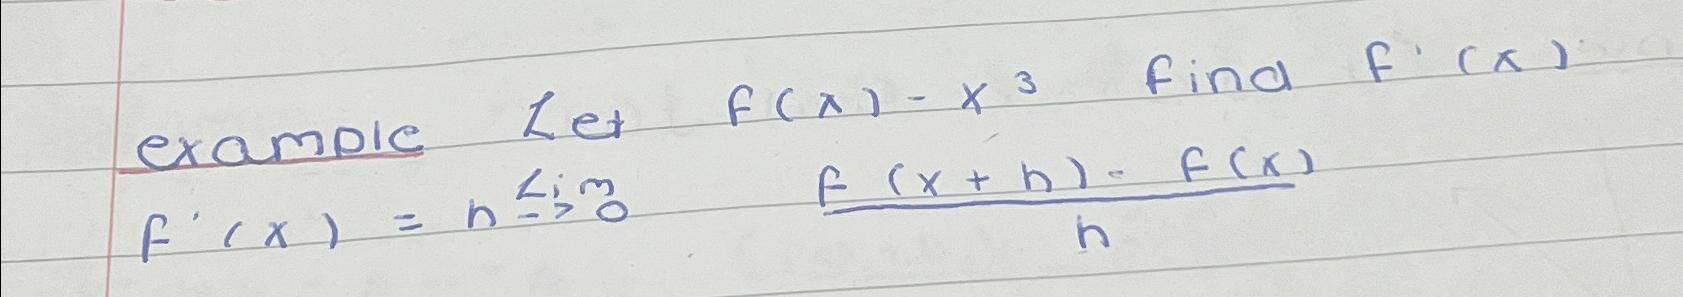 example Let f(x) - x³ find f'(x)
f'(x) = h Lim -> 0 f(x+h) - f(x) / h